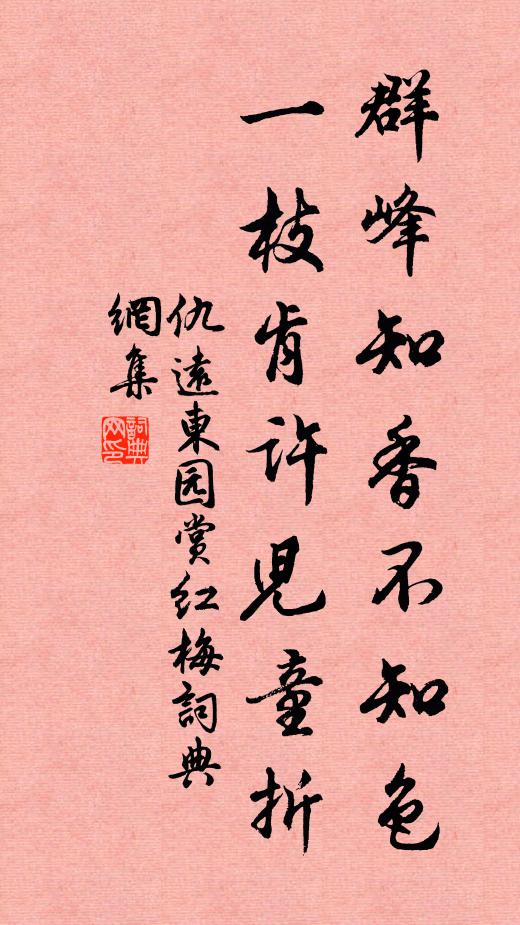 群峰知香不知色
一枝肯许児童折
仇遠東园赏红梅詞典
網集
詞典
网印